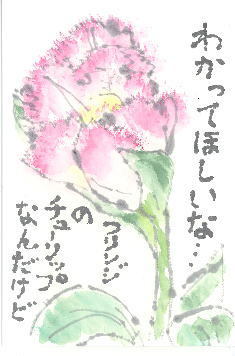 わかってほしいな…
フリンジ
の
チューリップ
なんだけど